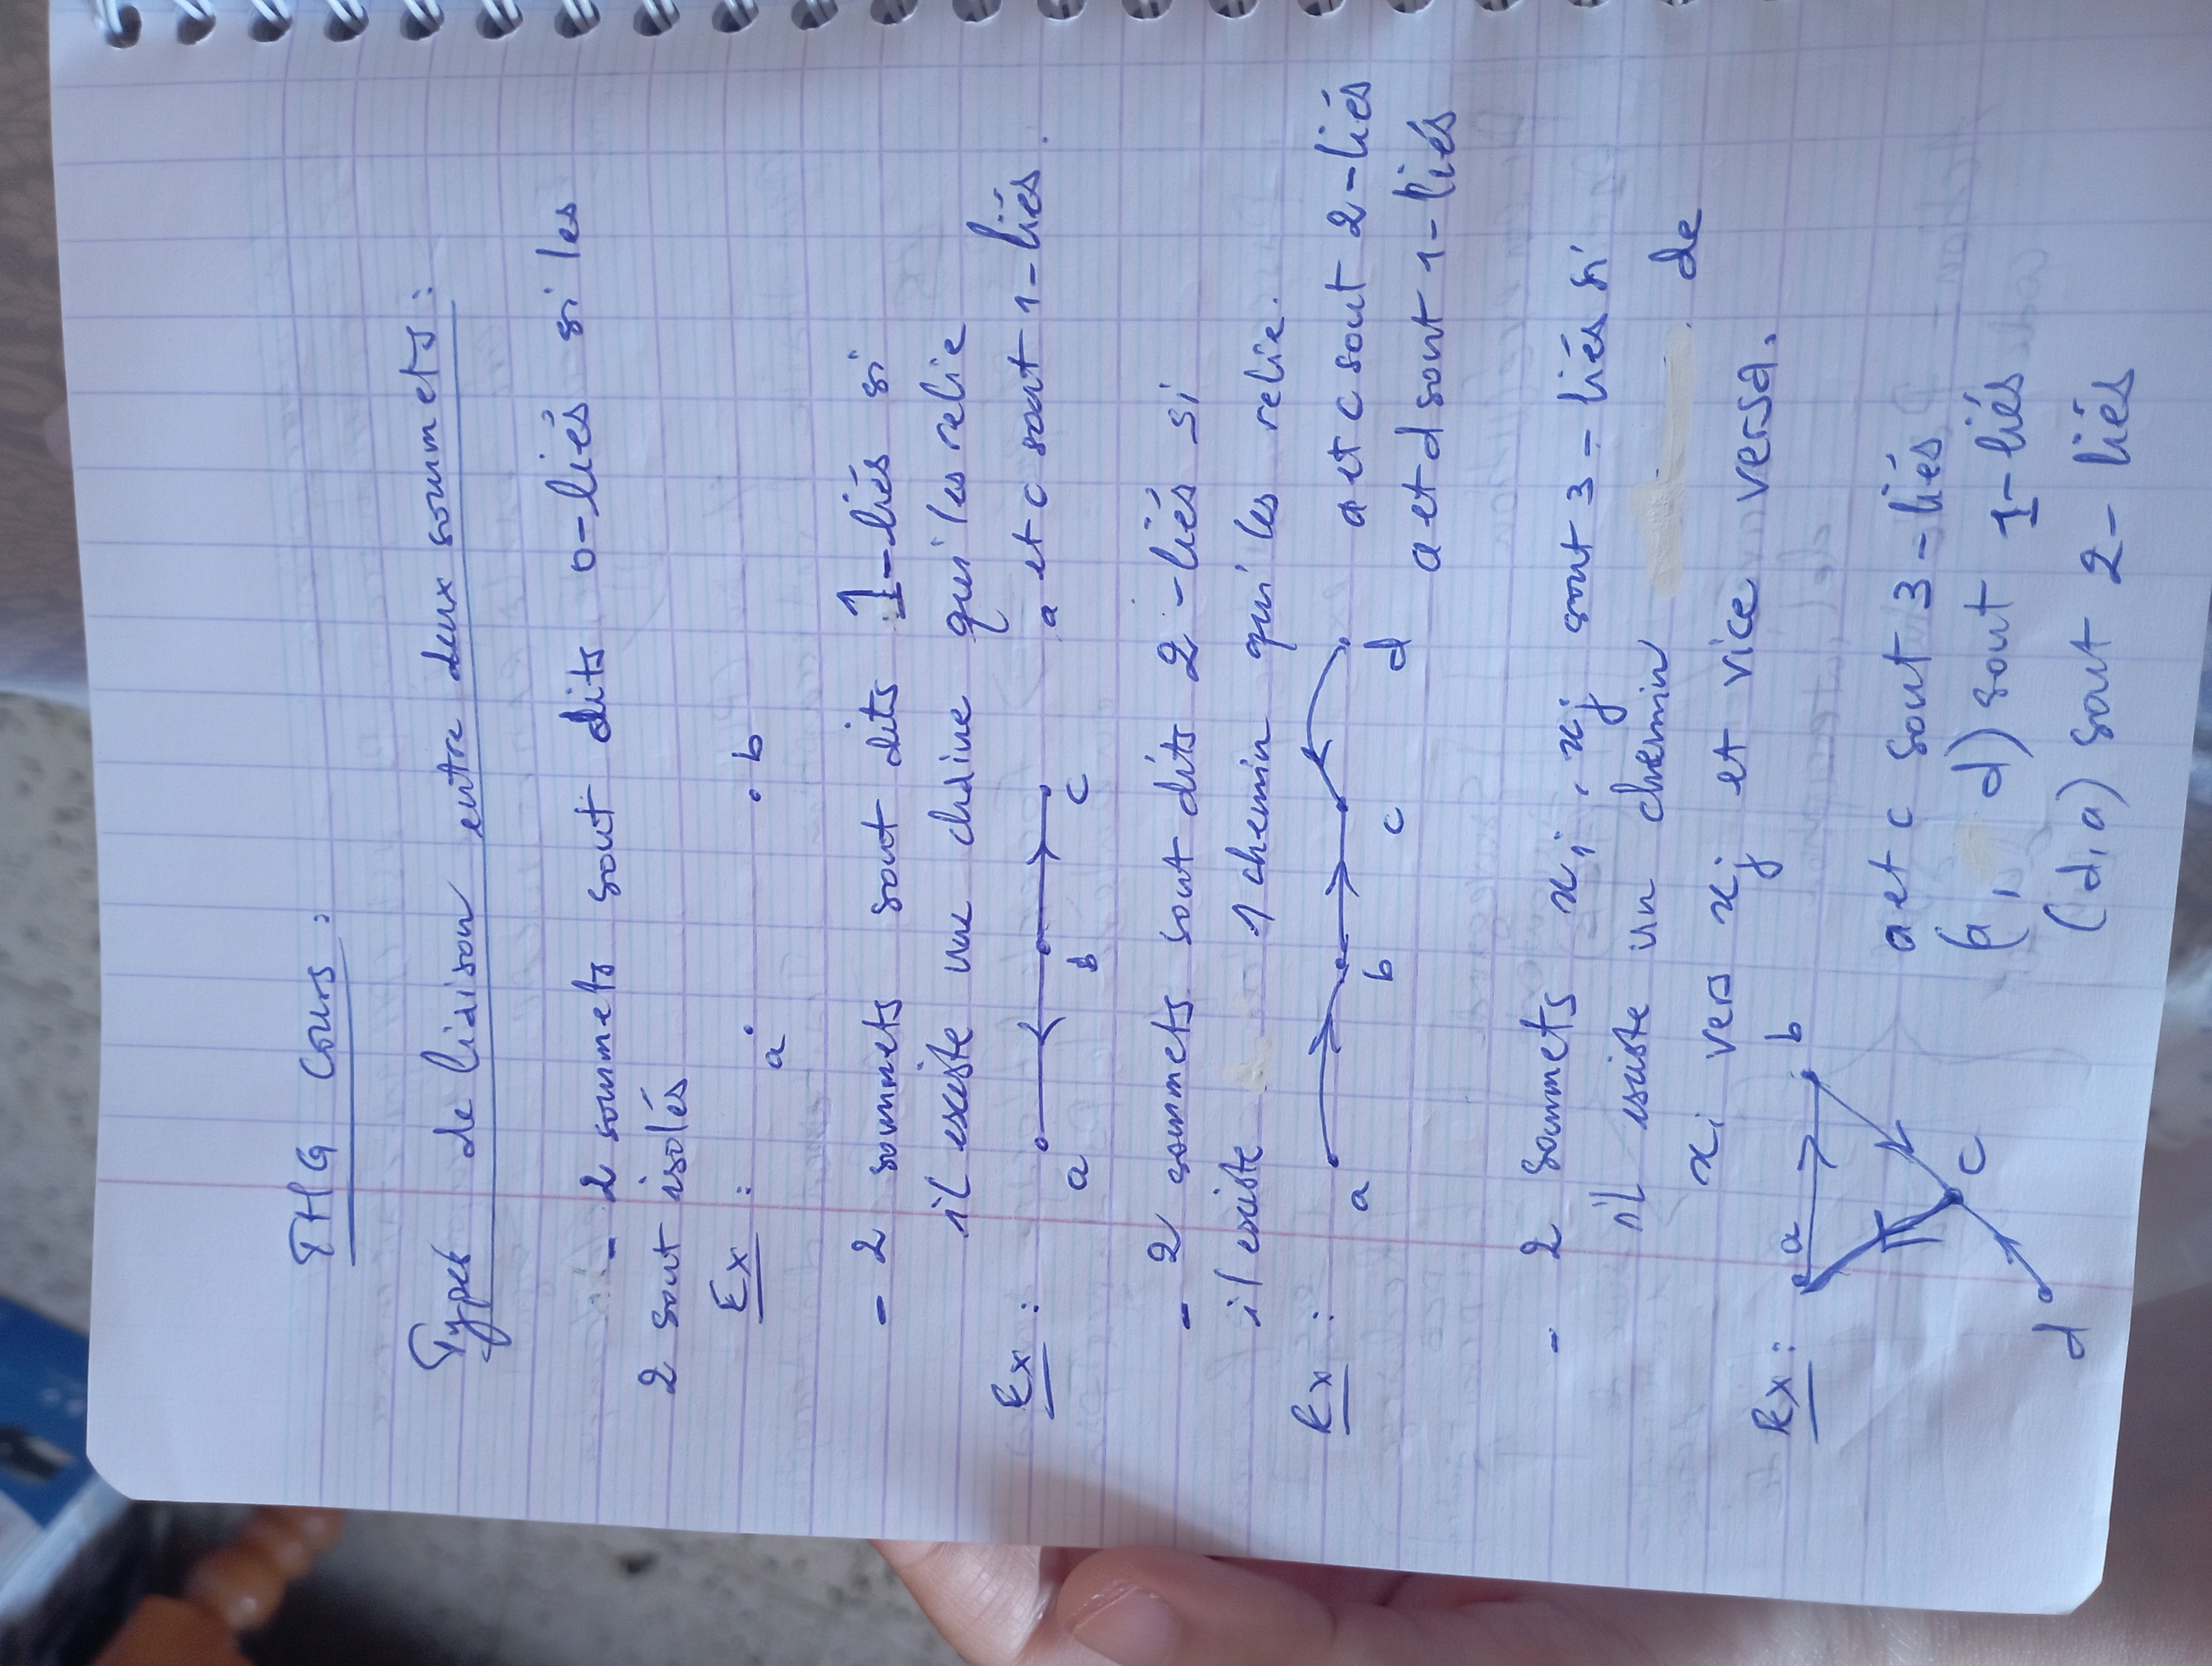 THG Cours :
Types de liaison entre deux sommets :
- 2 sommets sont dits 0-liés si les
2 sont isolés
Ex : a b
- 2 sommets sont dits 1-liés si
il existe une chaine qui les relie
Ex : a b c a et c sont 1-liés.
- 2 sommets sont dits 2-liés si
il existe 1 chemin qui les relie.
Ex : a b c d a et c sont 2-liés
a et d sont 1-liés
- 2 sommets xi, xj sont 3-liés si
il existe un chemin de
xi vers xj et vice versa.
Ex : a b
a et c sont 3-liés
c (b, d) sont 1-liés
d (d, a) sont 2-liés